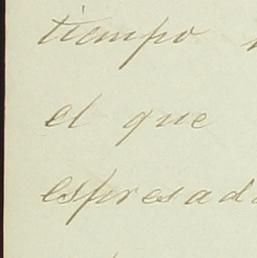 tiempo
el que
espresad